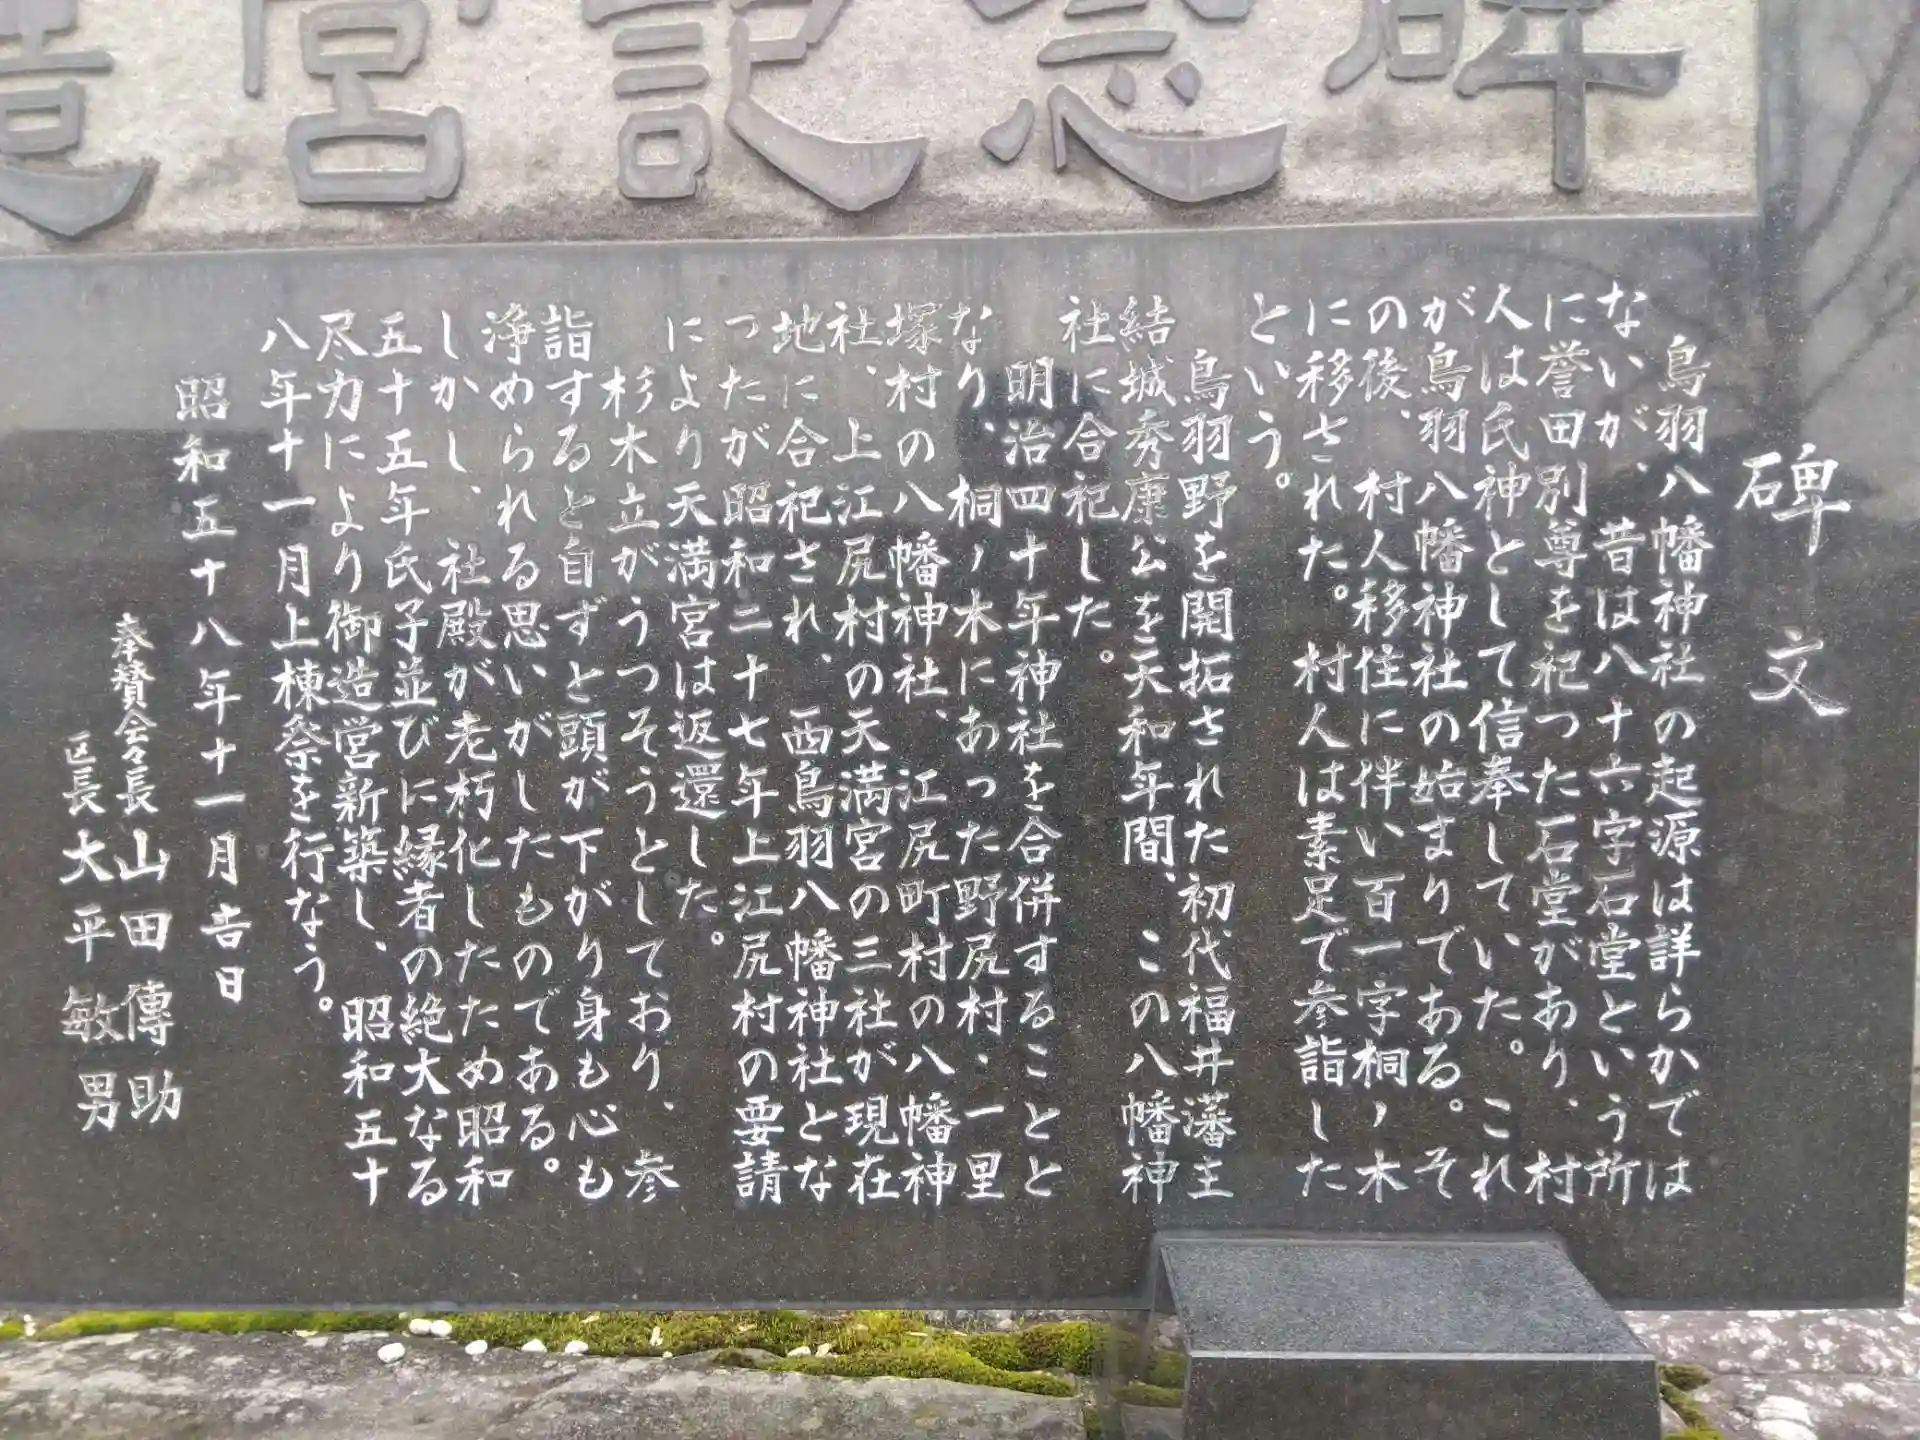 造営記念碑
碑文
鳥羽八幡神社の起源は詳らかでは
ないが、昔は八十六字石堂という所
に誉田別尊を祀った石堂があり、村
人は氏神として信奉していた。これ
が鳥羽八幡神社の始まりである。そ
の後、村人移住に伴い百一字桐ノ木
に移された。村人は素足で参詣した
という。
鳥羽野を開拓された初代福井藩主
結城秀康公を天和年間、この八幡神
社に合祀した。
明治四十年神社を合併することと
なり、桐ノ木にあった野尻村・一里
塚村の八幡神社、江尻町村の八幡神
社、上江尻村の天満宮の三社が現在
地に合祀され、西鳥羽八幡神社とな
ったが昭和二十七年上江尻村の要請
により天満宮は返還した。
杉木立がうつそうとしており、参
詣すると自ずと頭が下がり身も心も
浄められる思いがしたものである。
しかし、社殿が老朽化したため昭和
五十五年氏子並びに縁者の絶大なる
尽力により御造営新築し、昭和五十
八年十一月上棟祭を行なう。
昭和五十八年十一月吉日
奉賛会々長 山田傳助
区長 大平敏男